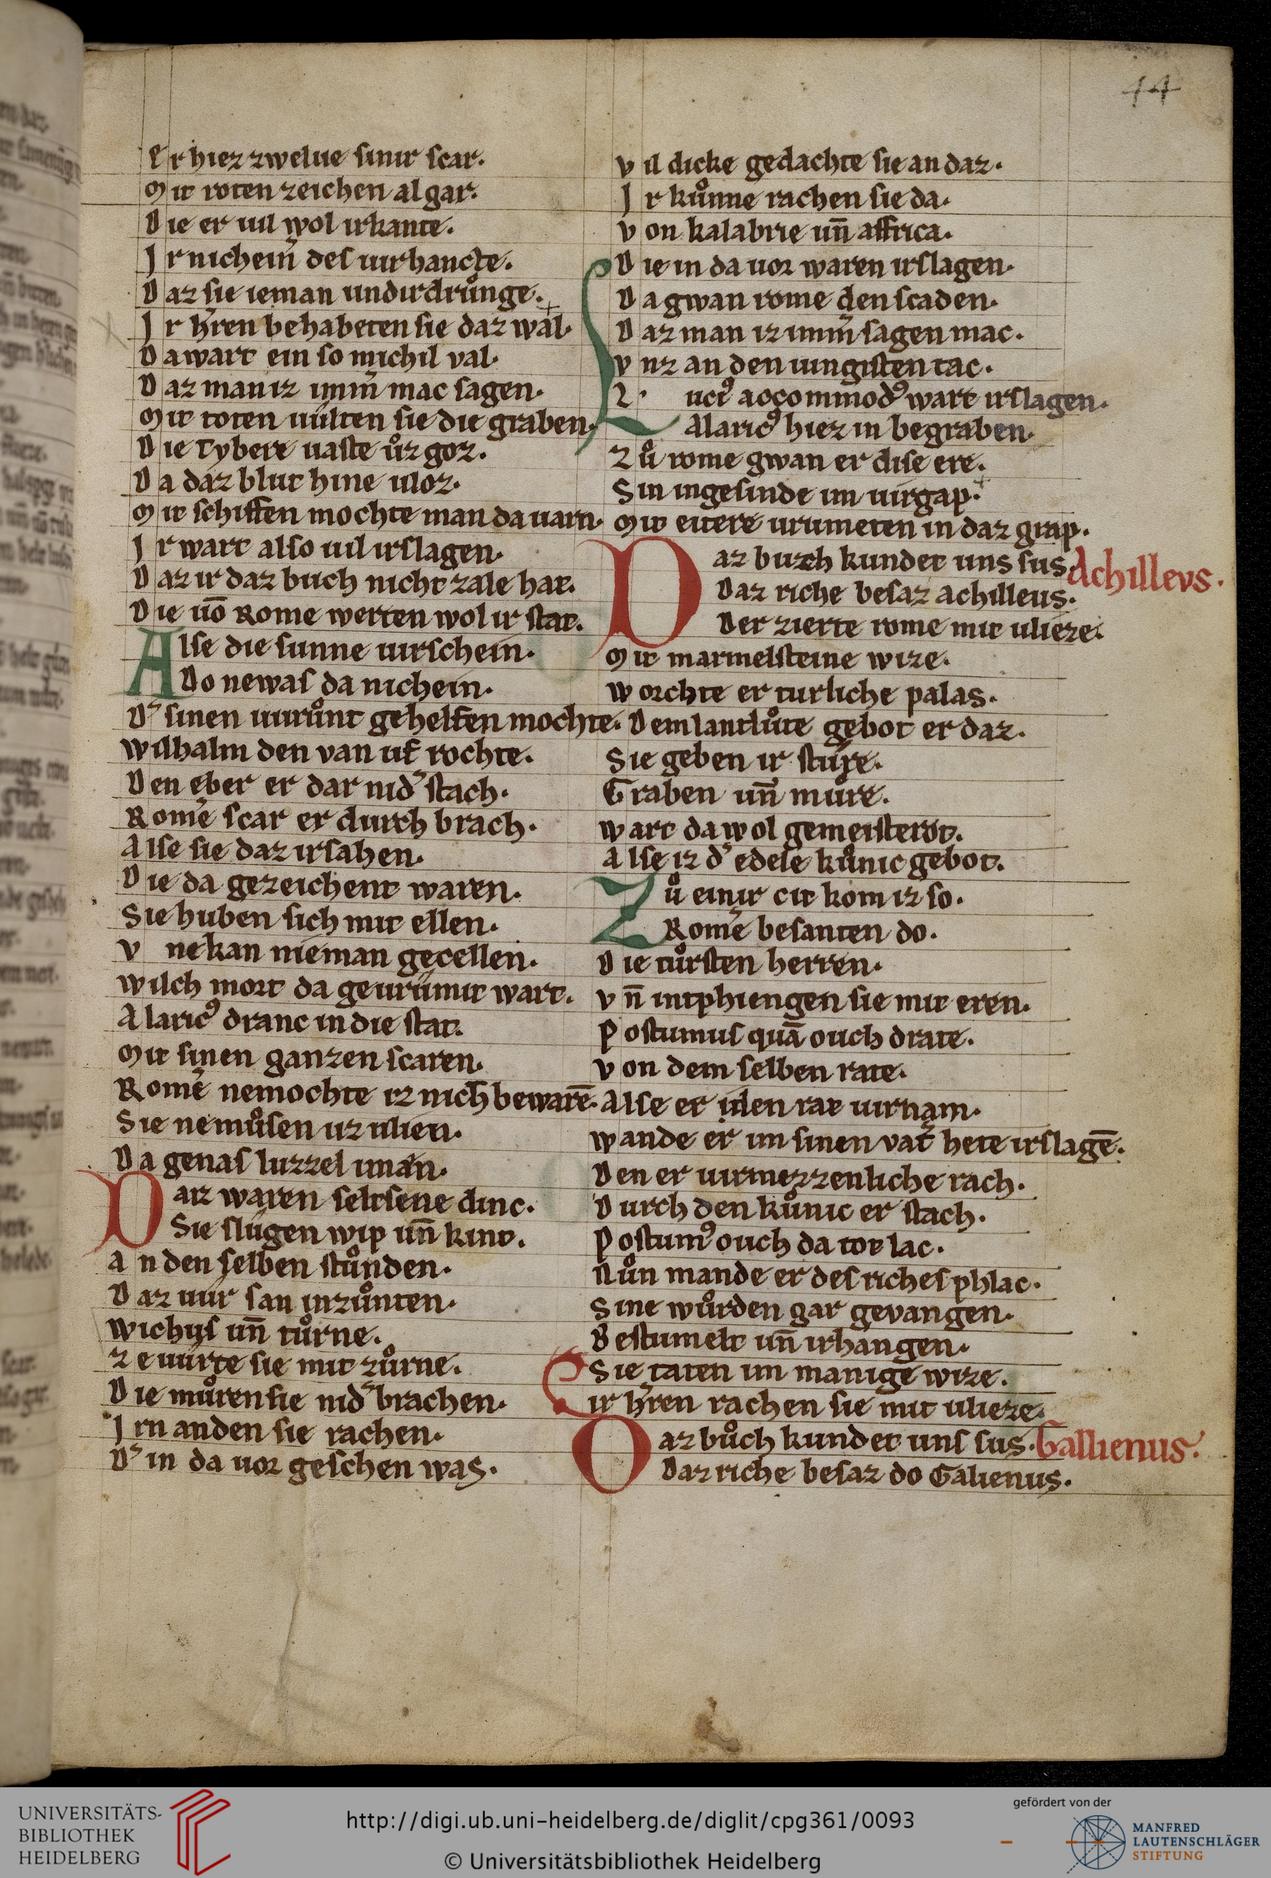 44
Er hiez zwelue sinir scar.
Mit roten zeichen al gar.
Die er uil wol irkante.
Ir nichein͛ des uirhancte.
Daz sie ieman undirdrůnge.
Ir h͛ren behabeten sie daz wal.
Da wart ein so michil val.
Daz man iz imm͛ mac sagen.
Mit toten uulten sie die graben.
Die Tybere uaste ůz goz.
Da daz blut hine uloz.
Mit schiffen mochte man da uarn.
Ir wart also uil irslagen.
Daz ir daz buch nicht zale hat.
Die uō Rome werten wol ir stat.
Alse die sunne uirschein.
Do newas da nichein.
D͛ sinen uurůnt gehelfen mochte.
Wilhalm den van uf rochte.
Den eber er dar nid͛ stach.
Rom͛e scar er durch brach.
Alse sie daz irsahen.
Die da gezeichent waren.
Sie huben sich mit ellen.
Vnekan nieman gecellen.
Wilch mort da geurumit wart.
Alaric͛ dranc in die stat.
Mit sinen ganzen scaren.
Rom͛e nemochte iz nich bewarē.
Sie ne můsen uz ulien.
Da genas luzzel iman.
Daz waren seltsene dinc.
Sie slugen wip un̄ kint.
An den selben stůnden.
Daz uur san inzůnten.
Wichus un̄ tůrne.
Zeuurte sie mit zůrne.
Die můren sie nid͛ brachen.
Irn anden sie rachen.
D͛ in da uor geschen was.
Vil dicke gedachte sie an daz.
Ir kůnne rachen sie da.
Von kalabrie un̄ affrica.
Die in da uor waren irslagen.
Da gwan rome den scaden.
Daz man iz imm͛ sagen mac.
Vnz an den iungisten tac.
L uct͛ accommod͛ wart irslagen.
Alaric͛ hiez in begraben.
Zů rome gwan er dise ere.
Sin ingesinde im uirgap.
Mit eitere urumeten in daz grap.
Daz buch kundet uns sus.
Achilleus.
Daz riche besaz achilleus.
Der zierte rome mit ulieze.
Mit marmelsteine wize.
Worchte er turliche palas.
Dem lantlůte gebot er daz.
Sie geben ir sture.
Graben un̄ mure.
Wart da wol gemeisterot.
Alse iz d͛ edele kůnic gebot.
Zů einir cit kom iz so.
Rom͛e besanten do.
Die tůrsten herren.
Vn̄ intphiengen sie mit eren.
Postumus quā ouch drate.
Von dem selben rate.
Alse er iden rat uirnam.
Wande er im sinen vat͛ hete irslagē.
Den er uirmezzenliche rach.
Durch den kůnic er stach.
Postum͛ ouch da tot lac.
Nůn mande er des riches phlac.
Sine wůrden gar gevangen.
Bestumelt un̄ irhangen.
Sie taten im manige wize.
Ir h͛ren rachen sie mit ulieze.
Daz bůch kundet uns sus.
Gallienus.
Daz riche besaz do Galienus.
UNIVERSITÄTS-
BIBLIOTHEK
HEIDELBERG
http://digi.ub.uni-heidelberg.de/diglit/cpg361/0093
© Universitätsbibliothek Heidelberg
gefördert von der
MANFRED
LAUTENSCHLÄGER
STIFTUNG